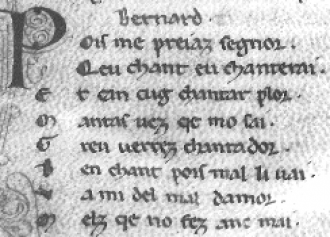 Bernard.
Pois me preiaz segnor.
Qeu chant eu chanterai.
E t can cug chantar plor.
M antas uez qe mo sai.
G reu uerrez chantador.
B en chant pois mal li uai.
A mi del mal damor.
M elz qe no fez anc mai.